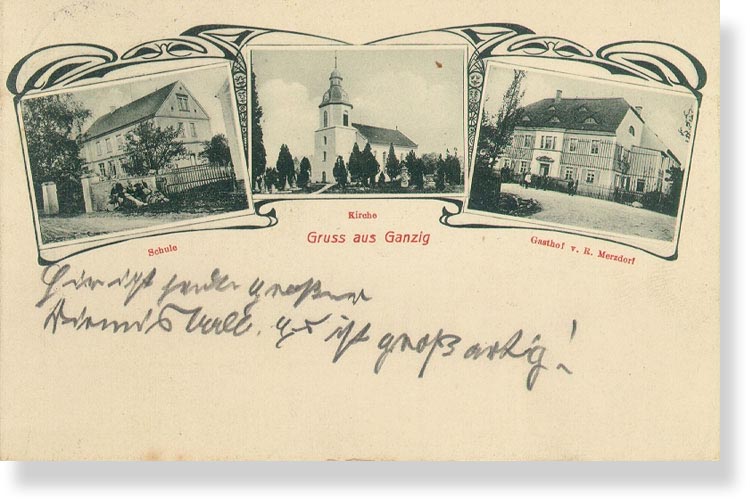 Schule
Kirche
Gasthof v. R. Merzdorf
Gruss aus Ganzig
Hier ist heute großer
ball. es ist großartig!